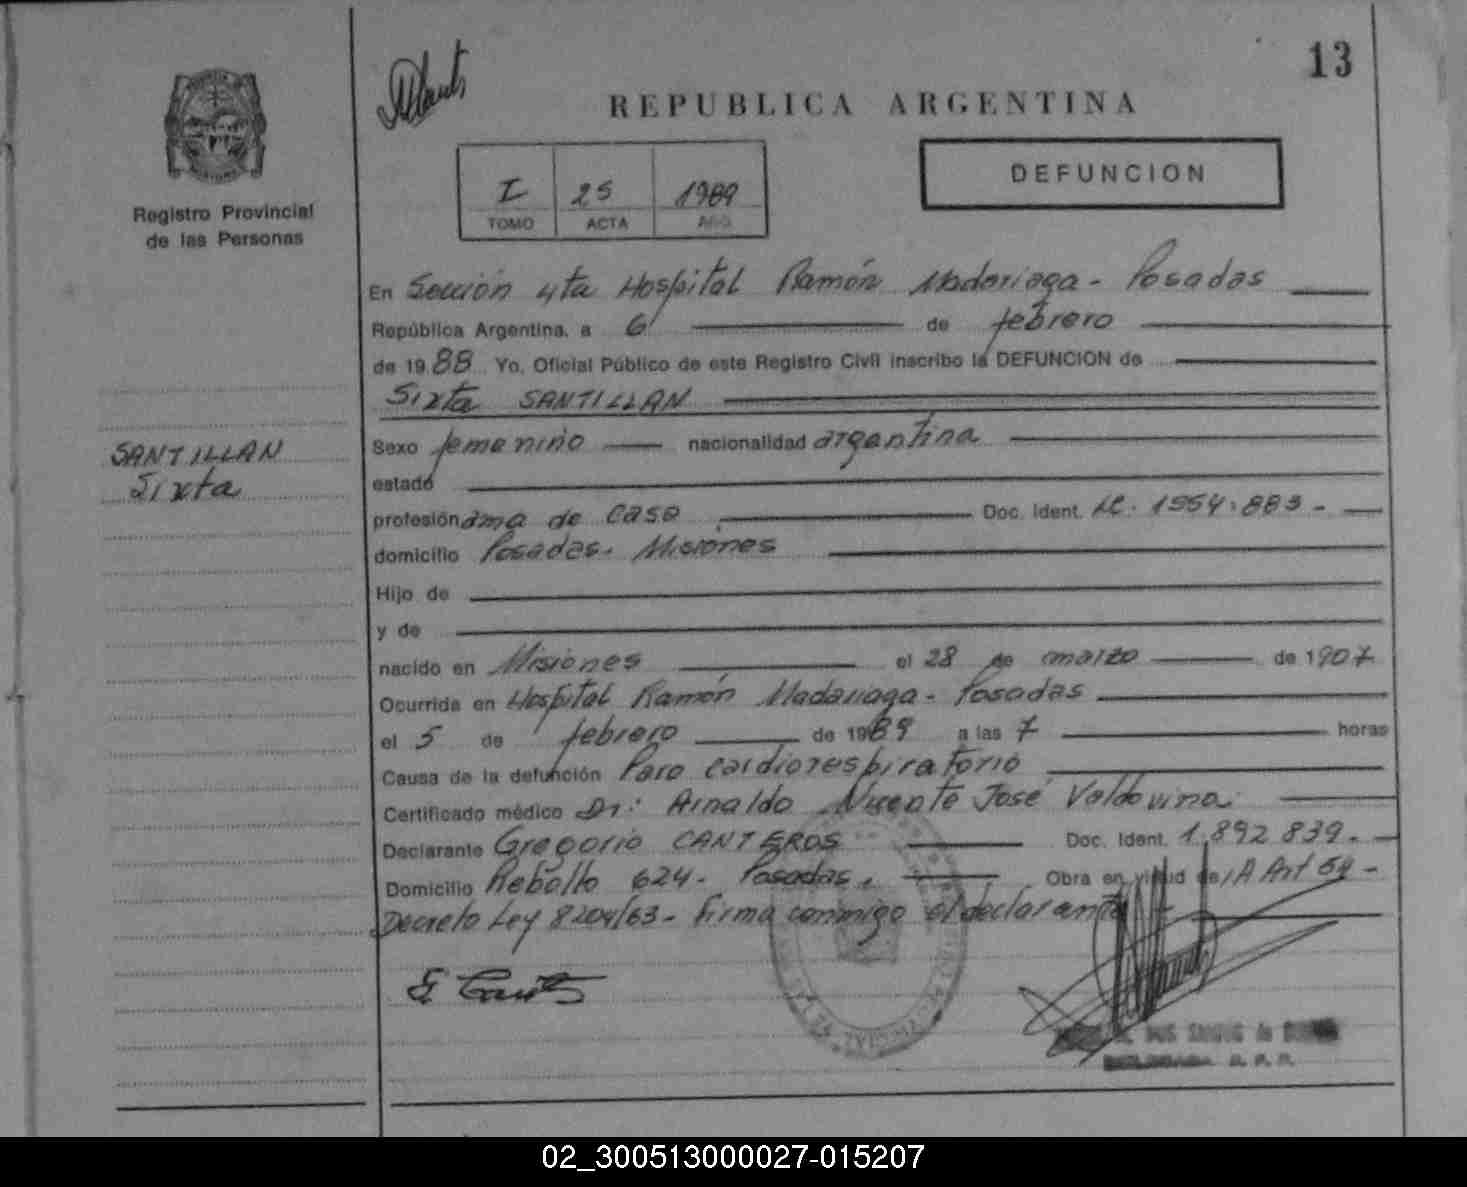 13
REPUBLICA ARGENTINA
I 25 1989
TOMO ACTA AÑO
DEFUNCION
Registro Provincial
de las Personas
SANTILLAN
Sixta
En Sección 4ta Hospital Ramón Madariaga - Posadas
República Argentina, a 6 de febrero
de 1988 Yo, Oficial Público de este Registro Civil inscribo la DEFUNCION de
Sixta SANTILLAN
Sexo femenino nacionalidad argentina
estado
profesión ama de casa Doc. Ident. LC. 1954.883.-
domicilio Posadas. Misiones
Hijo de
y de
nacido en Misiones el 28 de marzo de 1907
Ocurrida en Hospital Ramón Madariaga - Posadas
el 5 de febrero de 1989 a las 7 horas
Causa de la defunción Paro cardiorespiratorio
Certificado médico Dr: Arnaldo Vicente José Valdovina
Declarante Gregorio CANTEROS Doc. Ident. 1.892 839.-
Domicilio Rebollo 624- Posadas. Obra en virtud de Art 54-
Decreto Ley 8204/63- firma conmigo el declarante
02_300513000027-015207